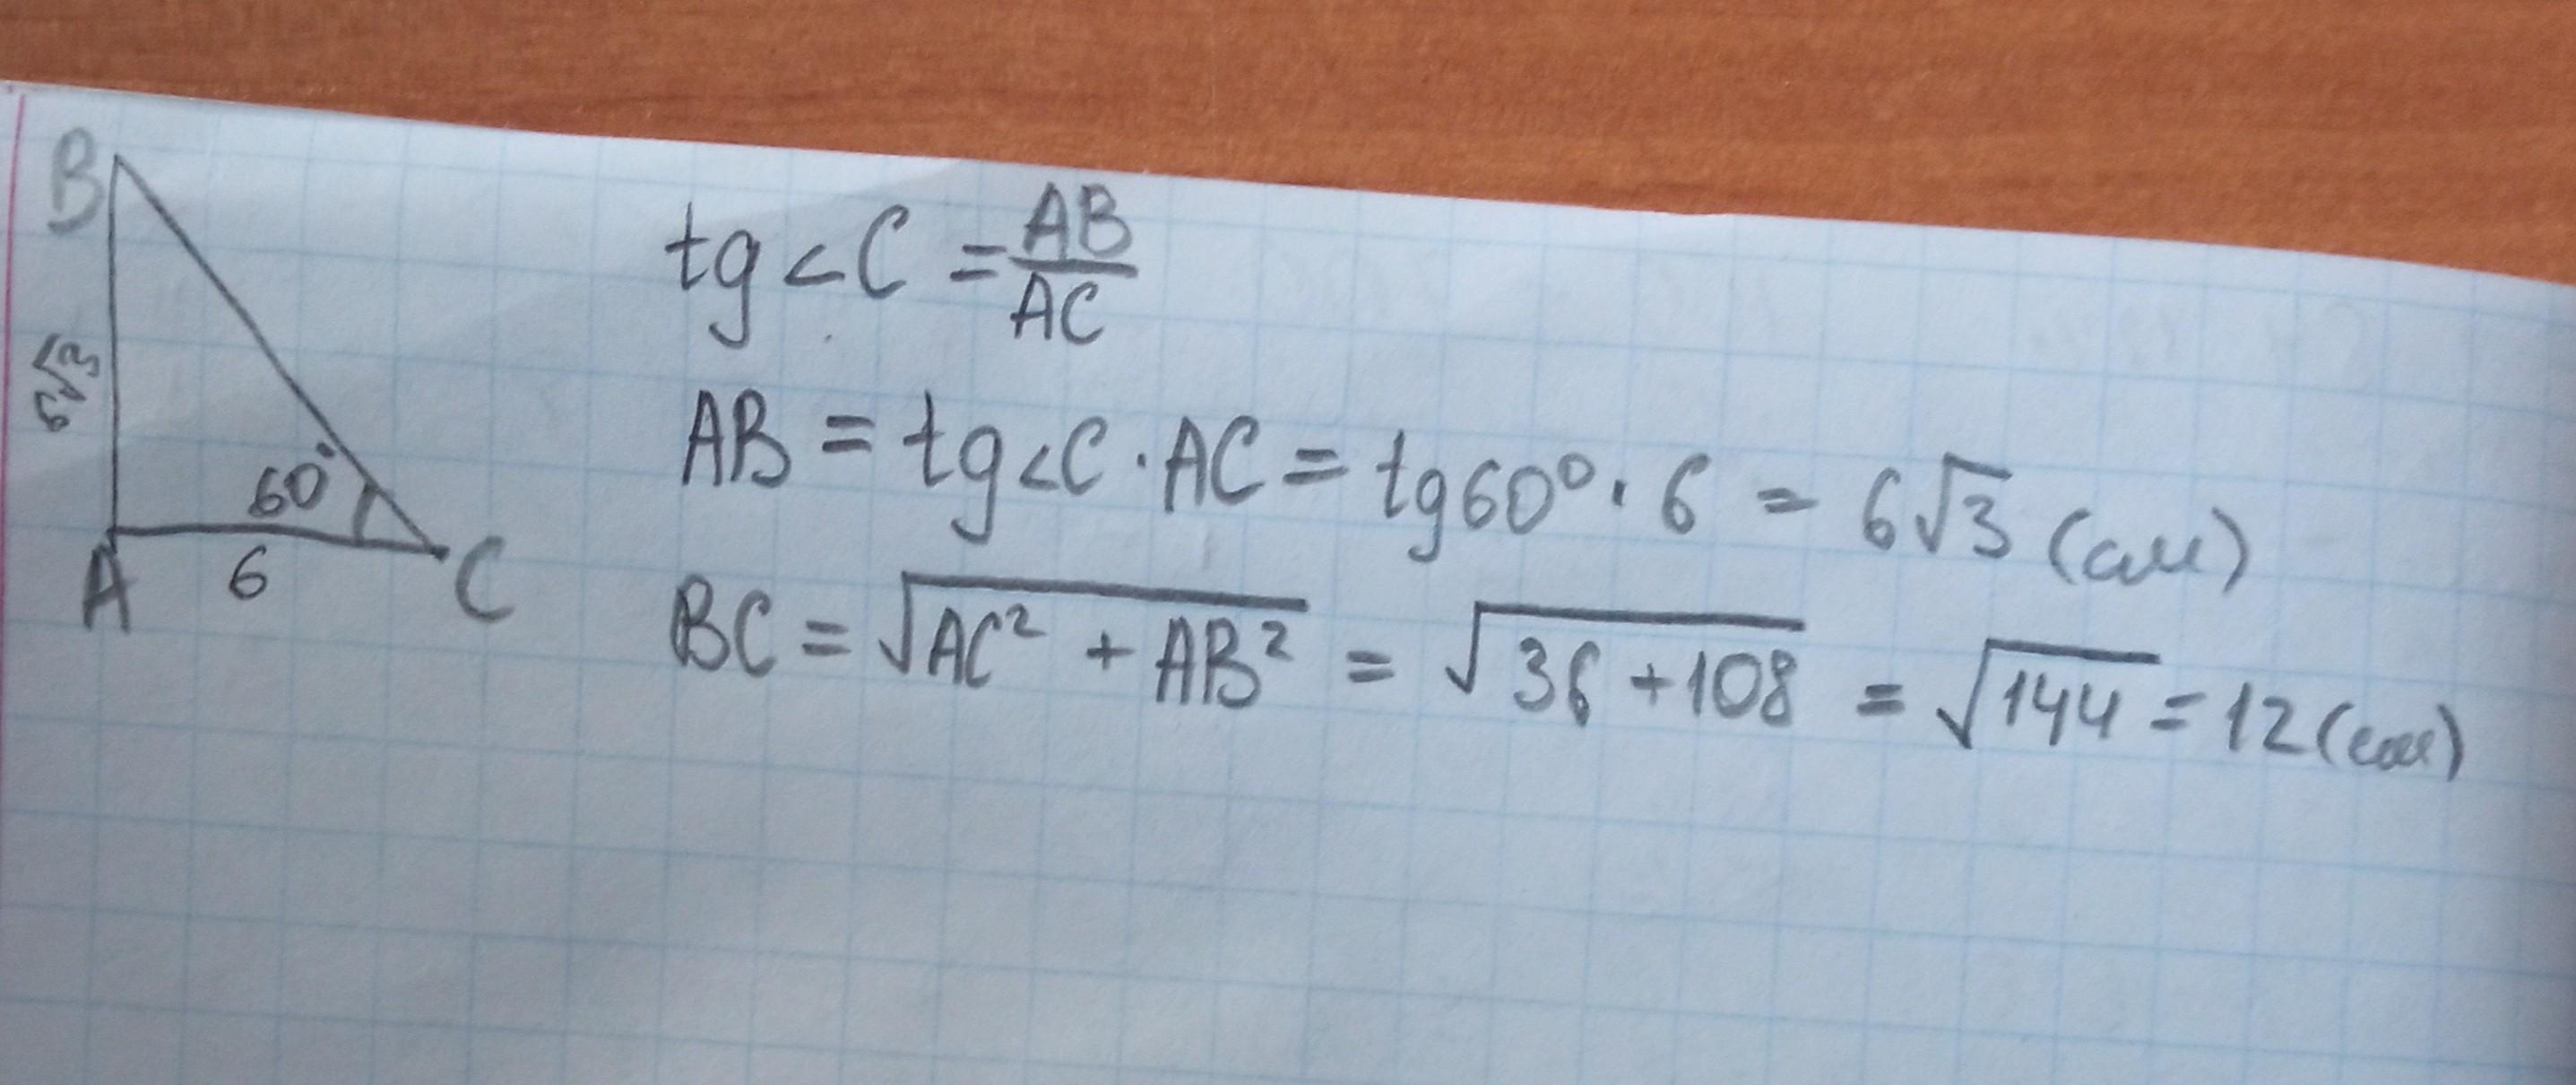 B
6√3
60°
A 6 C
tg<C = AB/AC
AB = tg<C · AC = tg60° · 6 = 6√3 (см)
BC = √AC² + AB² = √36 + 108 = √144 = 12 (см)